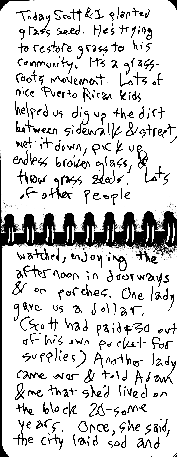 Today Scott & I planted
grass seed. He's trying
to restore grass to his
community. It's a grass-
roots movement. Lots of
nice Puerto Rican kids
helped us dig up the dirt
between sidewalk & street,
wet it down, pick up
endless broken glass, &
throw grass seeds. Lots
of other people
watched, enjoying the
afternoon in doorways
& on porches. One lady
gave us a dollar.
(Scott had paid $30 out
of his own pocket for
supplies) Another lady
came over & told Adam
& me that she'd lived on
the block 20-some
years. Once, she said,
the city laid sod and